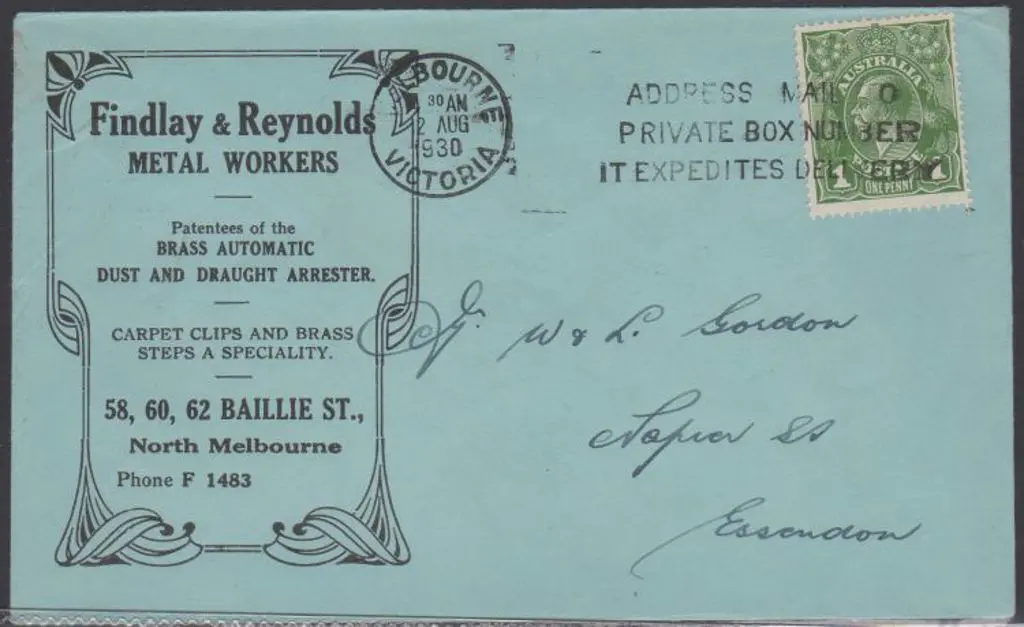 Findlay & Reynolds
METAL WORKERS
Patentees of the
BRASS AUTOMATIC
DUST AND DRAUGHT ARRESTER.
CARPET CLIPS AND BRASS
STEPS A SPECIALITY.
58, 60, 62 BAILLIE ST.,
North Melbourne
Phone F 1483
MELBOURNE
30 AM
2 AUG
1930
VICTORIA
ADDRESS MAIL TO
PRIVATE BOX NUMBER
IT EXPEDITES DELIVERY
AUSTRALIA
1 1
ONE PENNY
W & L. Gordon
Napier St
Essendon